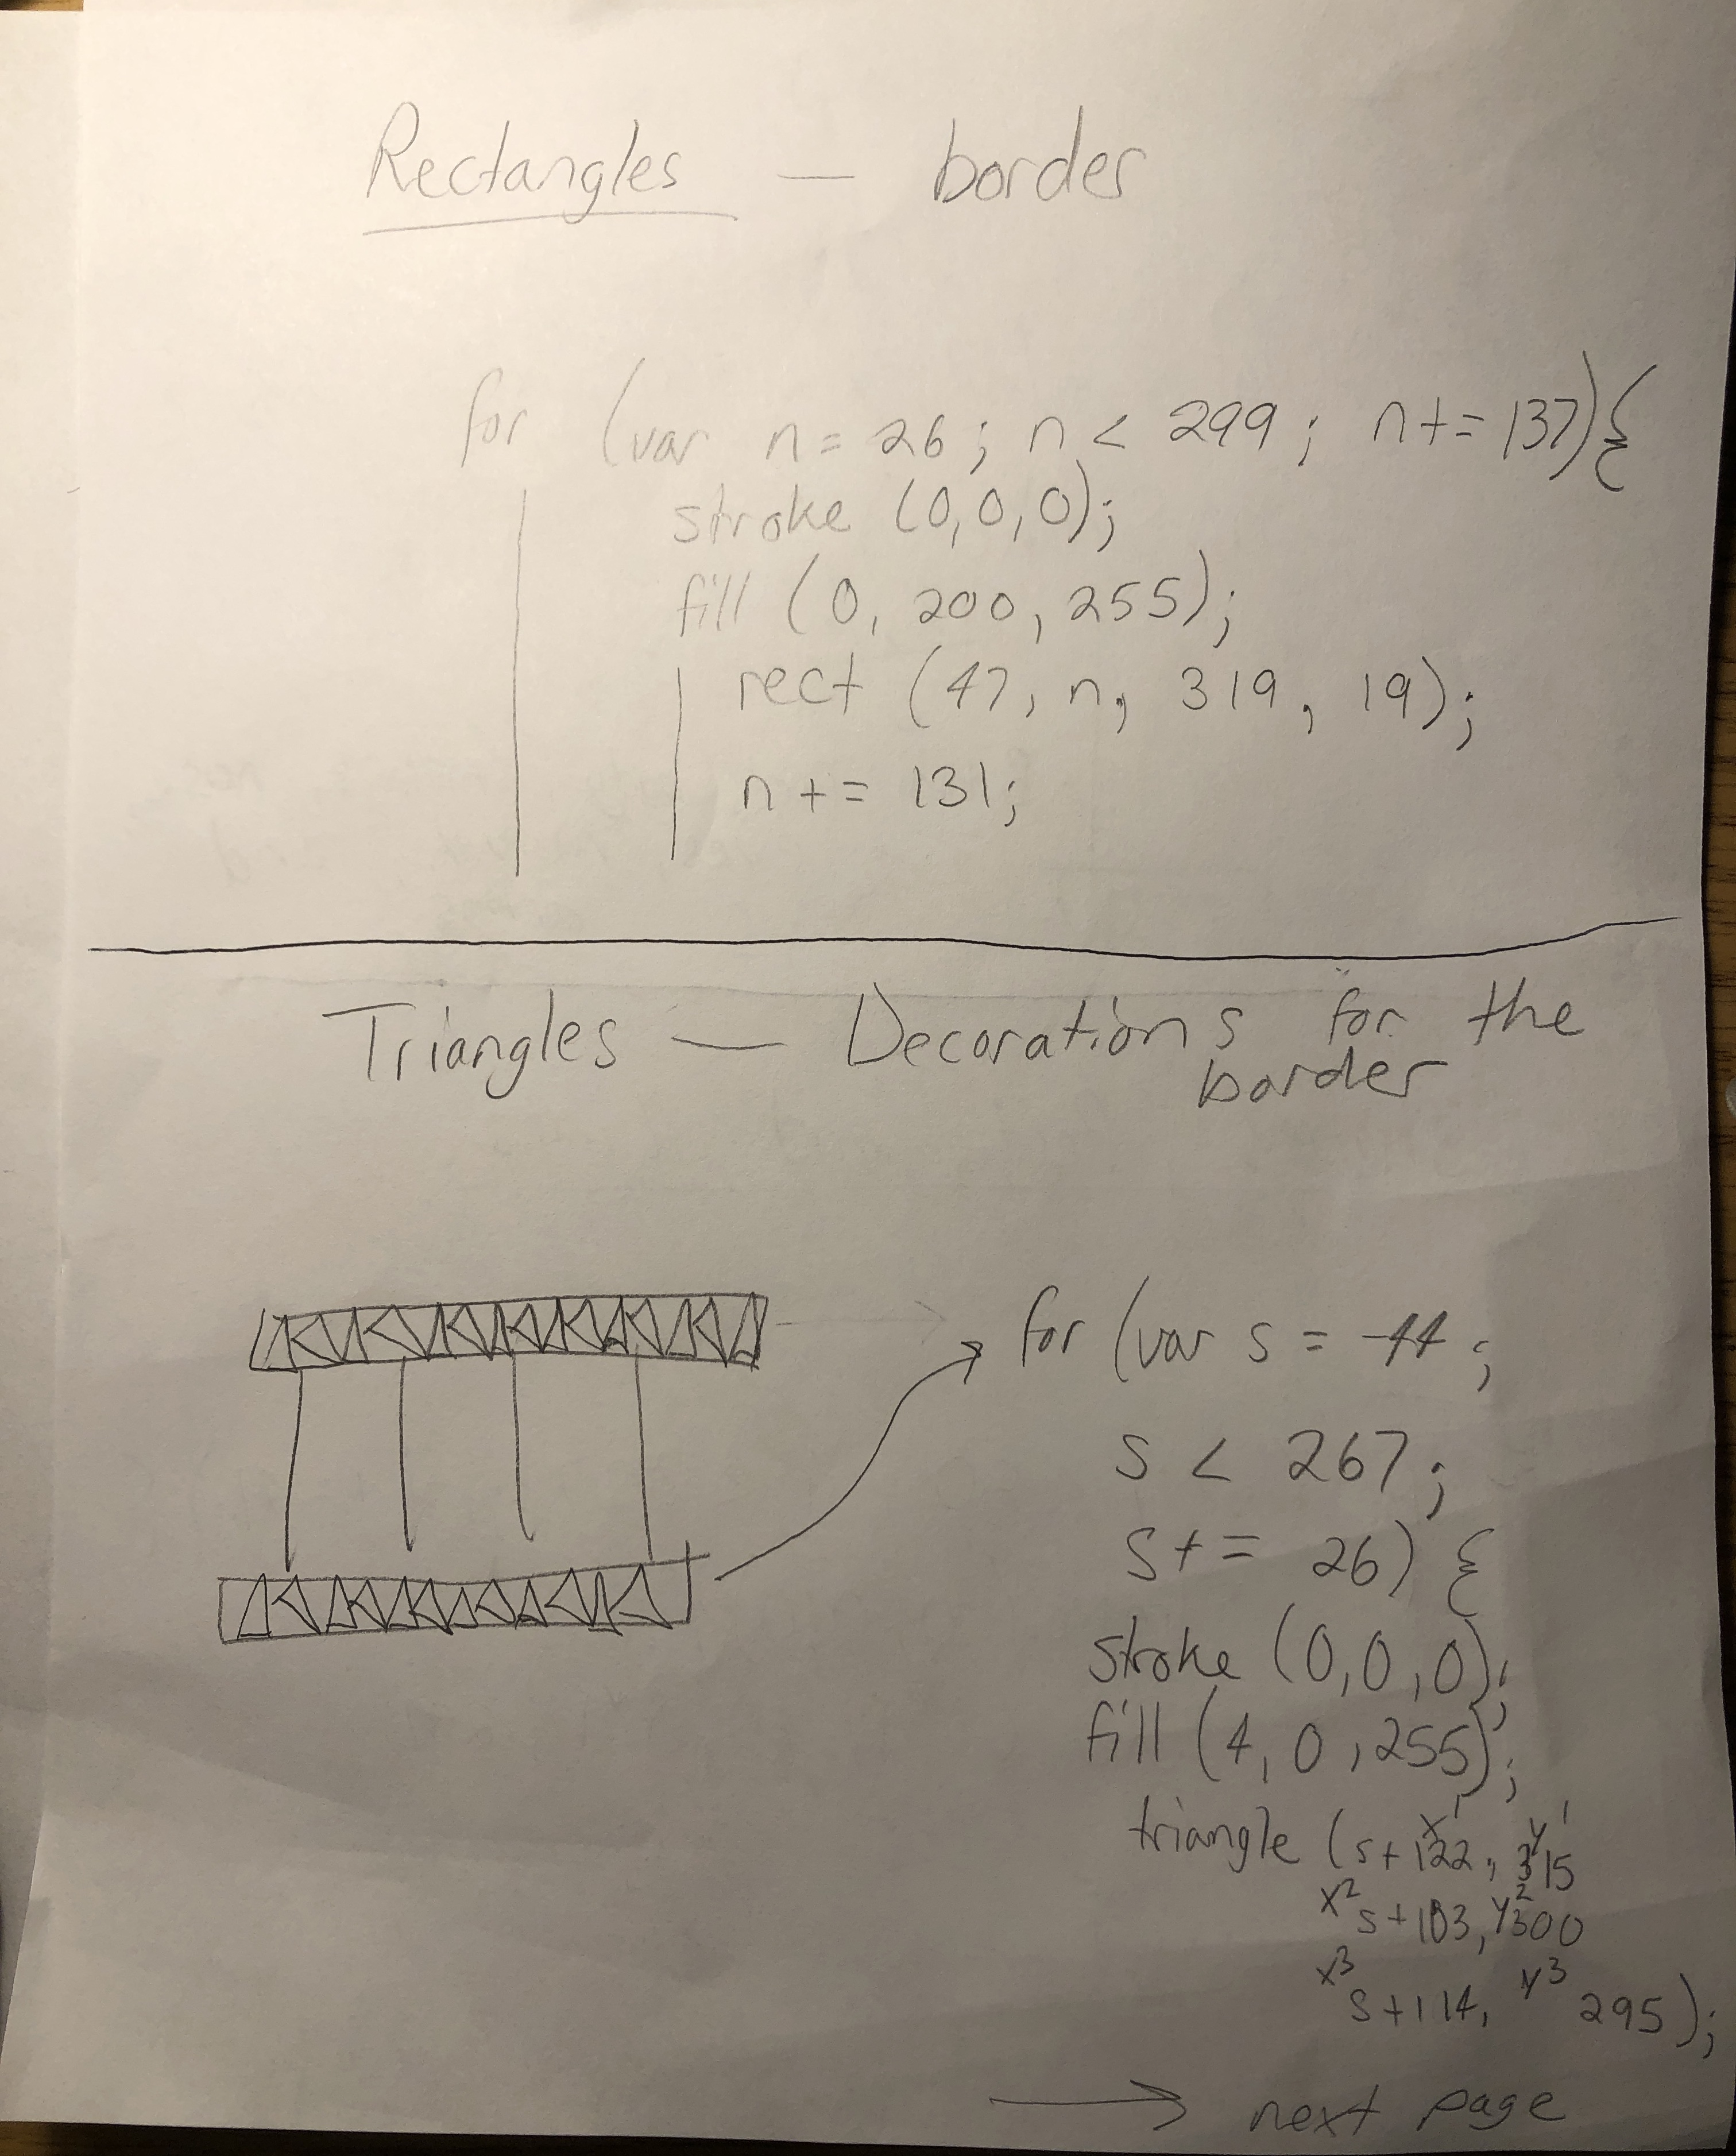 Rectangles — border
for (var n = 26; n < 299; n += 137) {
stroke (0,0,0);
fill (0, 200, 255);
rect (47, n, 319, 19);
n += 131;
Triangles — Decorations for the
border
for (var s = -44;
s < 267;
s += 26) {
stroke (0,0,0);
fill (4, 0, 255);
x1 y1
triangle (s+122, 315
x2 y2
s+103, 300
x3 y3
s+114, 295);
→ next page